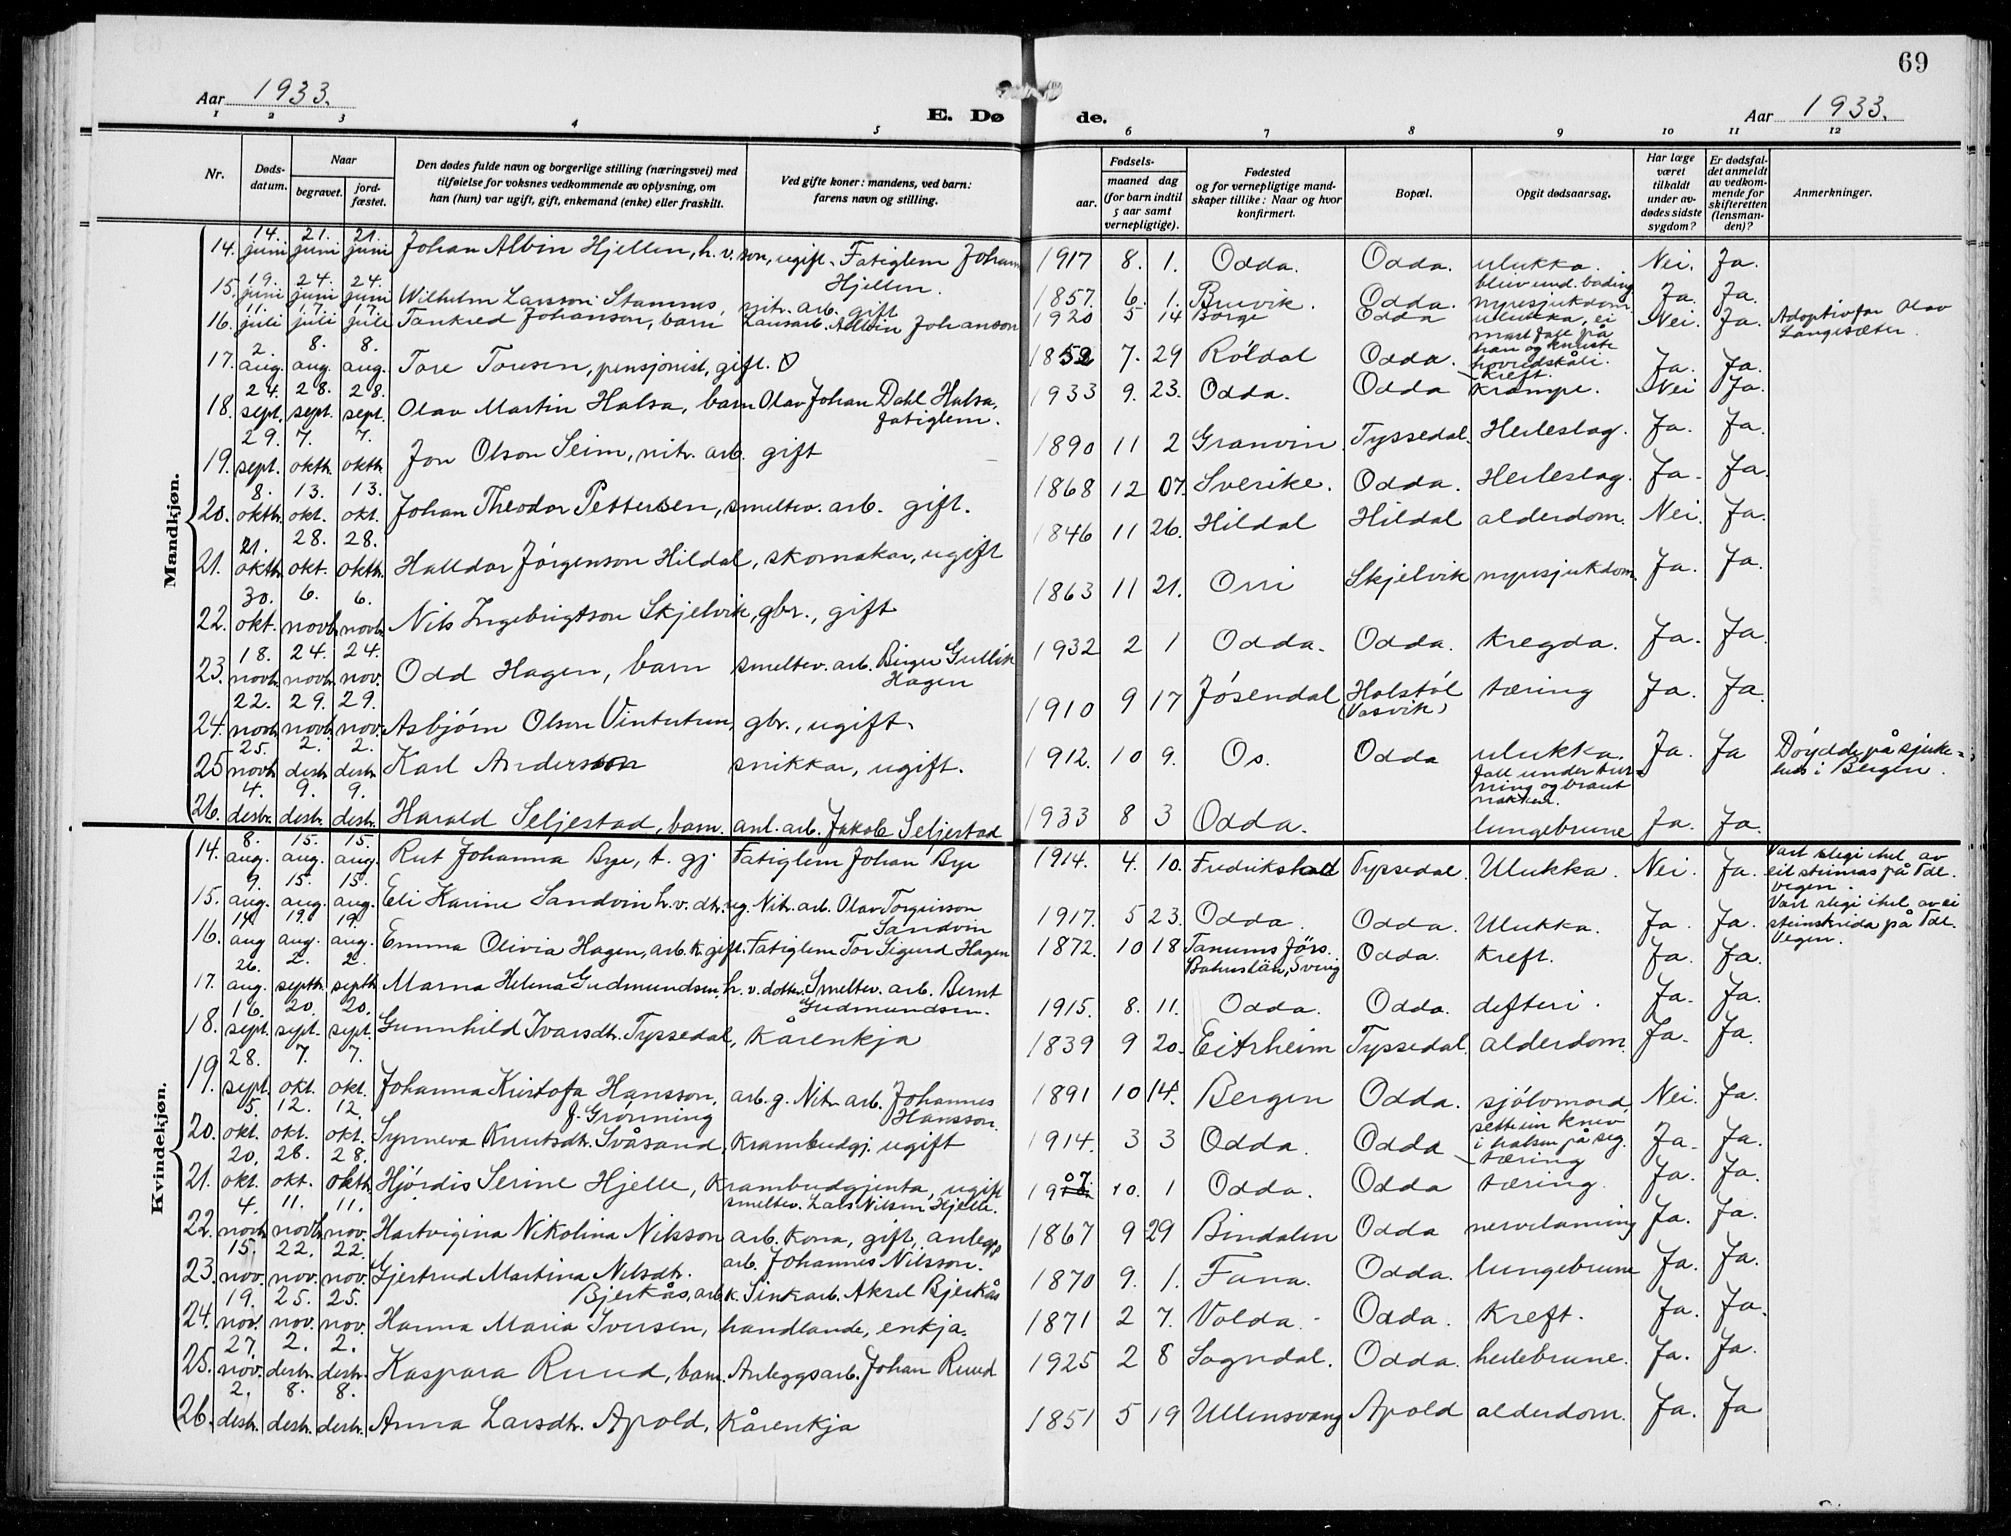 69
Aar 1933.
E. Døde.
Aar 1933.
1 2 3 4 5 6 7 8 9 10 11 12
Nr.
Døds-datum.
Naar
begravet.
jord-fæstet.
Den dødes fulde navn og borgerlige stilling (næringsvei) med
tilføielse for voksnes vedkommende av oplysning, om
han (hun) var ugift, gift, enkemand (enke) eller fraskilt.
Ved gifte koner: mandens, ved barn:
farens navn og stilling.
Fødsels-
aar.
maaned dag
(for barn indtil
5 aar samt
vernepligtige).
Fødested
og for vernepligtige mand-
skaper tillike: Naar og hvor
konfirmert.
Bopæl.
Opgit dødsaarsag.
Har læge
været
tilkaldt
under av-
dødes sidste
sygdom?
Er dødsfal-
det anmeldt
av vedkom-
mende for
skifteretten
(lensman-
den)?
Anmerkninger.
Mandkjøn.
14. 14. juni 21. juni 21. juni Johan Albin Hjellen, h. v. son, ugift. Fatiglem Johan Hjellen. 1917 8. 1. Odda. Odda. ulukka. bleiv und. bading Nei. Ja.
15. 19. juni 24. juni 24. juni Wilhelm Larsson Stamnes, nitr. arb. gift 1857. 6. 1. Bruvik. Odda. nyresjukdom. Ja. Ja.
16. 11. juli 17. juli 17. juli Tankred Johanson, barn Lausarb. Albin Johanson 1920 5 14 Borge Odda ulukka, ei mast fall på han og knuste hovudskåli. Nei. Ja. Adoptivfar Olav Langesæter.
17. 2. aug. 8. aug. 8. aug. Tore Toresen, pensjonist, gift. 1852 7. 29 Röldal Odda. kreft. Ja. Ja.
18. 24. sept. 28. sept. 28. sept. Olav Martin Halsa, barn Olav Johan Dahl Halsa, fatiglem. 1933 9. 23. Odda. Odda krampe. Nei Ja.
19. 29. sept. 7. oktb. 7. oktb. Jon Olson Seim, nitr. arb. gift 1890 11 2 Granvin Tyssedal. Herteslag. Ja. Ja.
20. 8. oktb. 13. okt. 13. okt. Johan Theodor Pettersen, smeltev. arb. gift. 1868 12 07. Sverike. Odda. Herteslag. Ja. Ja.
21. 21. oktb. 28. okt. 28. oktb. Halldor Jørgenson Hildal, skomakar, ugift 1846 11 26. Hildal Hildal alderdom. Nei. Ja.
22. 30. okt. 6. novb. 6. novb. Nils Ingebrigtson Skjelvik, gbr., gift 1863 11 21. Orri Skjelvik nyresjukdom. Ja. Ja.
23. 18. novb. 24. novb. 24. nov. Odd Hagen, barn smeltev. arb. Birger Gullik Hagen 1932 2 1 Odda. Odda. kregda. Ja. Ja.
24. 22. novb. 29. novb. 29. nov. Asbjørn Olson Vintertun, gbr., ugift. 1910 9 17 Jøsendal Holstøl (Vasvik) tæring Ja. Ja.
25 25. novb. 2. desbr. 2. desbr. Karl Anderson snikkar, ugift. 1912. 10 9. Os. Odda ulukka. fall under turning og braut nakken. Ja. Ja Døydde på sjukehus i Bergen.
26. 4. desbr. 9. desbr. 9. desbr. Harald Seljestad, barn. anl. arb. Jakob Seljestad 1933 8 3 Odda. lungebrune Ja. Ja.
Kvindekjøn.
14. 8. aug. 15. aug. 15. aug. Rut Johanna Bye, t. gj Fatiglem Johan Bye 1914. 4. 10. Fredrikstad Tyssedal. Ulukka. Nei. Ja. Vart slegi ihel av eit steinras på Tdl. vegen.
15. 9. aug. 15. aug. 15. aug. Eli Karine Sandvin h. v. dtr. ug. Nitr. arb. Olav Torgeirsson Sandvin 1917. 5 23. Odda Odda. Ulukka. Ja. Ja. Vart slegi ihel av ei steinskrida på Tdl. Vegen.
16. 14. aug 19. aug. 19. aug. Emma Olivia Hagen, arb. k. gift. Fatiglem Tor Sigurd Hagen 1872. 10 18 Tanums Jörs. Bahuslän, Sverig Odda. kreft. Ja. Ja.
17. 26. aug. 2. septb. 2. septb Marna Helena Gudmundsen, h. v. dotter. Smeltev. arb. Bernt Gudmundsen. 1915. 8. 11. Odda. Odda. difteri. Ja. Ja.
18. 16. sept. 20. sept. 20. sept. Gunnhild Ivarsdtr. Tyssedal, kårenkja 1839 9 20. Eitrheim Tyssedal. alderdom. Ja. Ja.
19. 28. sept. 7. okt. 7. okt. Johanna Kristofa Hansson, f. Grønning arb. g. Nitr. arb. Johannes Hansson. 1891 10 14. Bergen Odda. sjølvmord, sette ein kniv i halsen på seg. Nei. Ja.
20. 5 okt. 12. okt. 12, okt. Synneva Knutsdtr. Svåsand, krambudgj. ugift 1914. 3 3 Odda. Odda tæring Ja. Ja.
21. 20. okt. 28. okt. 28. oktb. Hjørdis Serine Hjelle, krambudgjenta, ugift smeltev. Lars Nilsen Hjelle. 1907 10. 1 Odda. Odda tæring. Ja. Ja.
22. 4. novb. 11. novb. 11. nov. Hartvigina Nikolina Nilsson arb. kona, gift, anlegg arb. Johannes Nilsson. 1867 9 29 Bindalen Odda nervelaming Ja. Ja.
23. 15. nov. 22. nov. 22. nov. Gjertrud Martina Nilsdtr. Bjerkås, arb. k. Sinkarb. Aksel Bjerkås 1870 9. 1. Fana. Odda. lungebrune Ja. Ja.
24. 19. nov. 25. nov. 25. nov. Hanna Maria Iversen, handlande, enkja. 1871 2 7. Volda. Odda. kreft. Ja. Ja.
25. 27. nov. 2. desbr. 2. desbr. Kaspara Ruud, barn. Anleggsarb. Johan Ruud 1925 2 8 Sogndal. Odda. heilebrune. Ja. Ja.
26. 2. desbr. 8. desbr. 8. desbr. Anna Larsdtr. Apold, kårenkja 1851 5 19 Ullensvang Apold alderdom. Ja. Ja